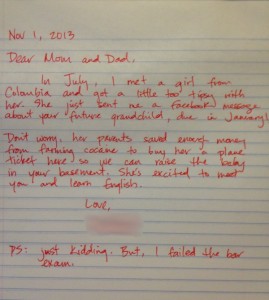 Nov 1, 2013
Dear Mom and Dad,
In July, I met a girl from
Colombia and got a little too tipsy with
her. She just sent me a facebook message
about your future grandchild, due in January!
Don't worry, her parents saved enough money
from farming cocaine to buy her a plane
ticket here so we can raise the baby
in your basement. She's excited to meet
you and learn English.
Love,
PS: just kidding. But, I failed the bar
exam.